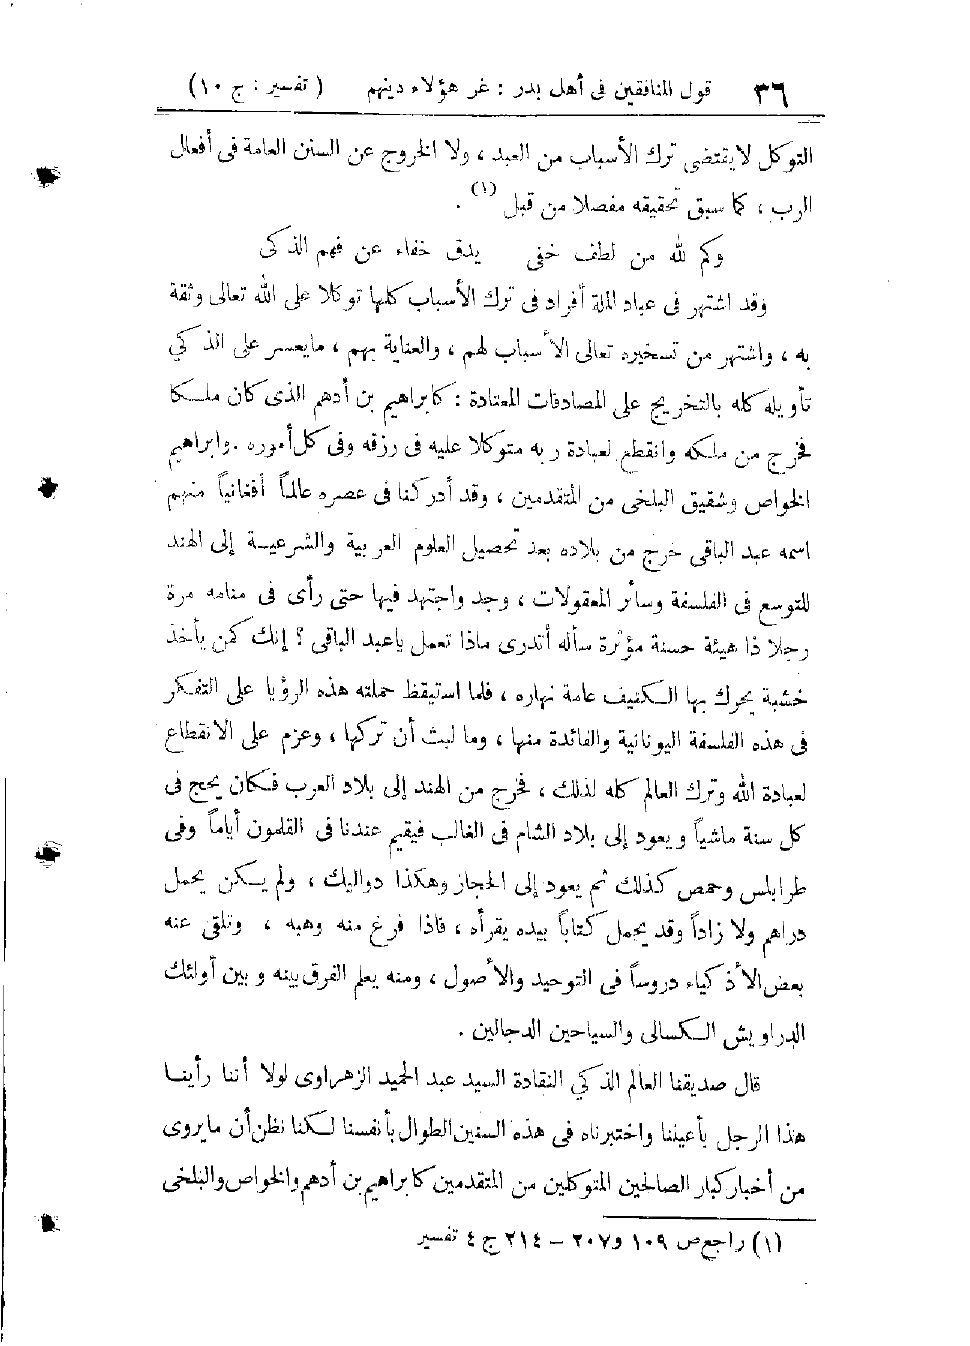 ٣٦ قول المنافقين فى أهل بدر : غر هؤلاء دينهم ( تفسير : ج ١٠ )
التوكل لا يقتضى ترك الأسباب من العبد ، ولا الخروج عن السنن العامة فى أفعال
الرب ، كما سبق تحقيقه مفصلا من قبل (١) .
وكم لله من لطف خفى يدق خفاء عن فهم الذكى
وقد اشتهر فى عباد الملة أفراد فى ترك الأسباب كلها توكلا على الله تعالى وثقة
به ، واشتهر من تسخيره تعالى الأسباب لهم ، والعناية بهم ، مايعسر على الذكي
تأويله كله بالتخريج على المصادفات المعتادة : كابراهيم بن أدهم الذى كان ملكا
فخرج من ملكه وانقطع لعبادة ربه متوكلا عليه فى رزقه وفى كل أموره . وابراهيم
الخواص وشقيق البلخى من المتقدمين ، وقد أدركنا فى عصره عالماً أفغانياً منهم
اسمه عبد الباقى خرج من بلاده بعد تحصيل العلوم العربية والشرعية إلى الهند
للتوسع فى الفلسفة وسائر المعقولات ، وجد واجتهد فيها حتى رأى فى منامه مرة
رجلا ذا هيئة حسنة مؤثرة سأله أتدرى ماذا تعمل ياعبد الباقى ؟ إنك كمن يأخذ
خشبة يحرك بها الكنيف عامة نهاره ، فلما استيقظ حملته هذه الرؤيا على التفكر
فى هذه الفلسفة اليونانية والفائدة منها ، وما لبث أن تركها ، وعزم على الانقطاع
لعبادة الله وترك العالم كله لذلك ، فخرج من الهند إلى بلاد العرب فكان يحج فى
كل سنة ماشياً ويعود إلى بلاد الشام فى الغالب فيقيم عندنا فى القلمون أياماً وفى
طرابلس وحمص كذلك ثم يعود إلى الحجاز وهكذا دواليك ، ولم يكن يحمل
دراهم ولا زاداً وقد يحمل كتاباً بيده يقرأه ، فاذا فرغ منه وهبه ، وتلقى عنه
بعض الأذكياء دروساً فى التوحيد والأصول ، ومنه يعلم الفرق بينه وبين أولئك
الدراويش الكسالى والسياحين الدجالين .
قال صديقنا العالم الذكي النقادة السيد عبد الحميد الزهراوى لولا أننا رأينا
هذا الرجل بأعيننا واختبرناه فى هذه السنين الطوال بأنفسنا لكنا نظن أن مايروى
من أخبار كبار الصالحين المتوكلين من المتقدمين كابراهيم بن أدهم والخواص والبلخى
(١) راجع ص ١٠٩ و ٢٠٧ – ٢١٤ ج ٤ تفسير